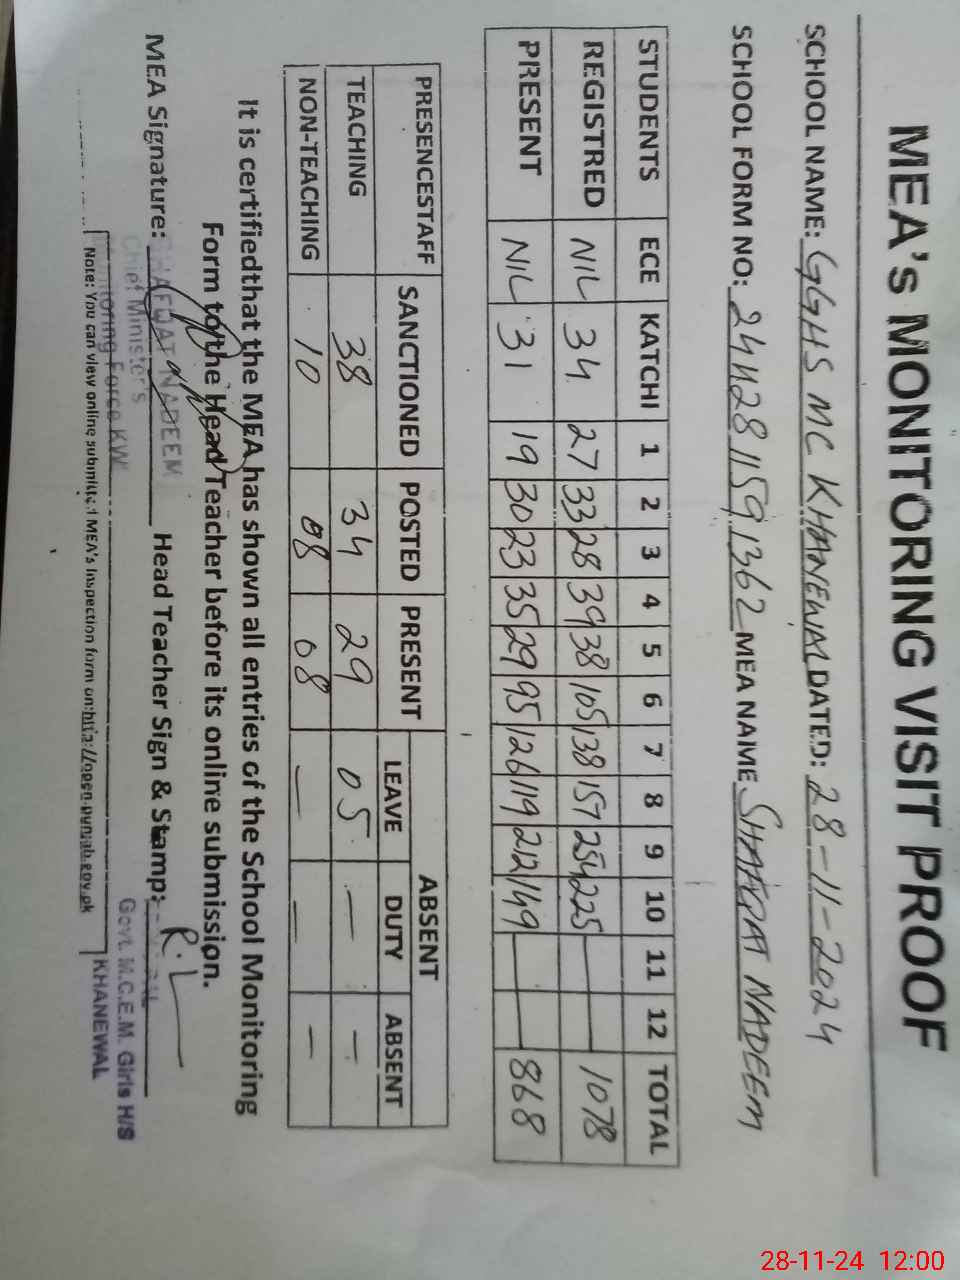 MEA's MONITORING VISIT PROOF
SCHOOL NAME: GGHS MC KHANEWAL DATED: 28-11-2024
SCHOOL FORM NO: 2442811591362 MEA NAME SHAFQAT NADEEM
STUDENTS ECE KATCHI 1 2 3 4 5 6 7 8 9 10 11 12 TOTAL
REGISTRED NIL 34 27 33 28 39 38 105 138 157 254 225 — — 1078
PRESENT NIL 31 19 30 23 35 29 95 126 119 212 149 — — 868
PRESENCESTAFF SANCTIONED POSTED PRESENT ABSENT
LEAVE DUTY ABSENT
TEACHING 38 34 29 05 — —
NON-TEACHING 10 08 08 — — —
It is certifiedthat the MEA has shown all entries of the School Monitoring
Form to the Head Teacher before its online submission.
MEA Signature: Head Teacher Sign & Stamp:
SHAFQAT NADEEM
Chief Minister's
Monitoring Force KW
Govt. M.C.E.M. Girls H/S
KHANEWAL
Note: You can view online submitted MEA's Inspection form on:http://open.punjab.gov.pk
28-11-24 12:00